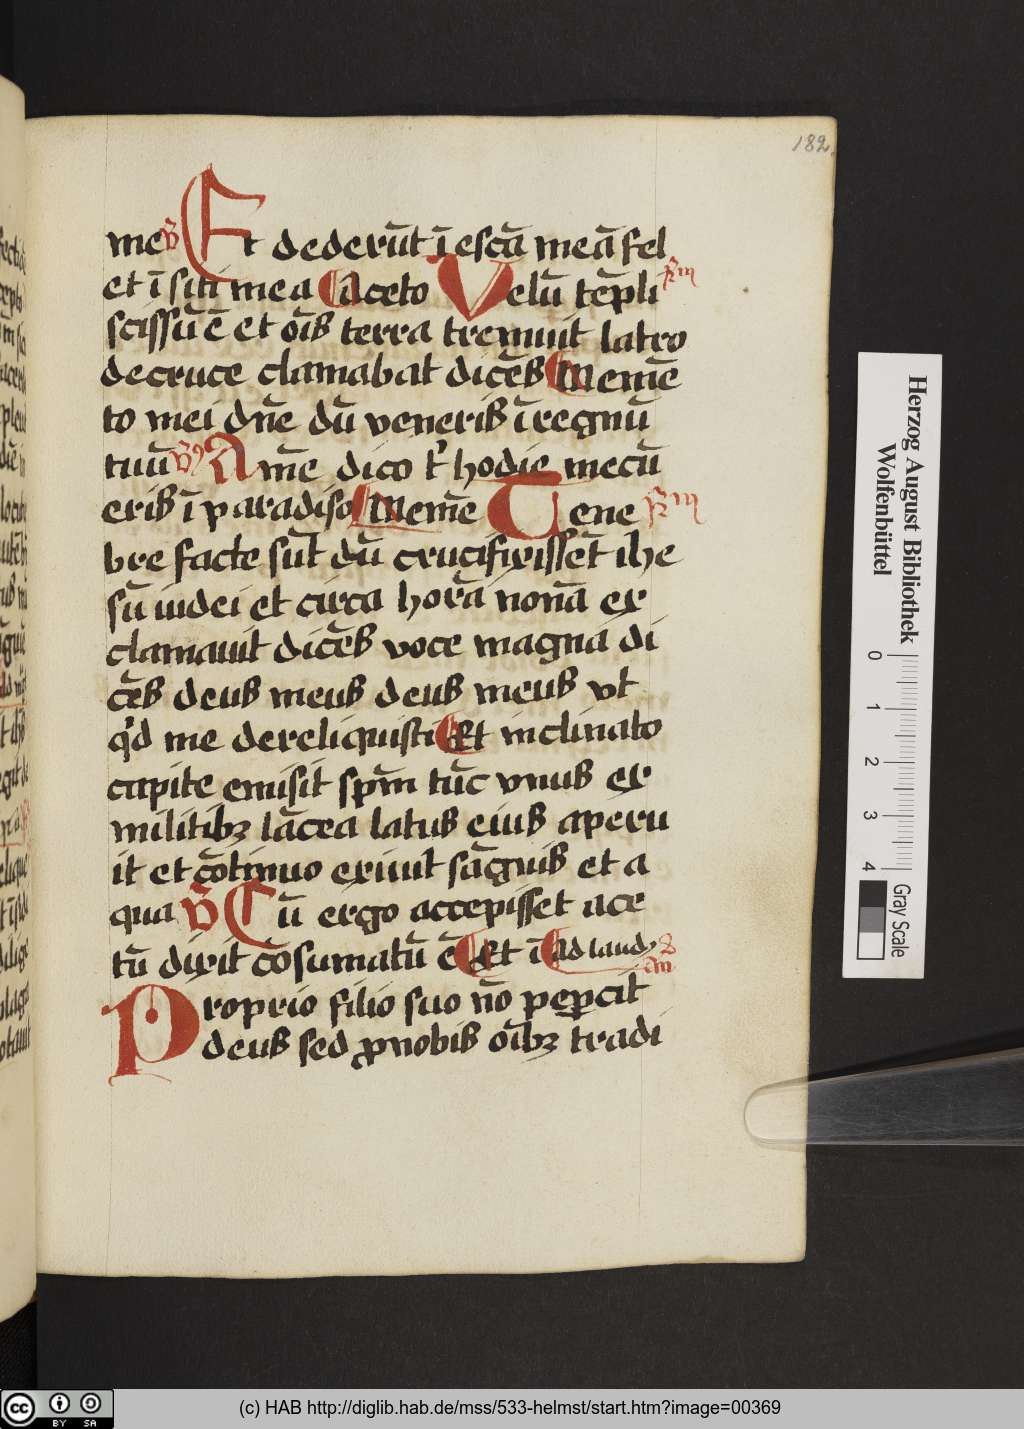 182
me v̄ Et dederūt ī escā meā fel
et ī siti mea Aceto Velū tēpli r̄m
scissū ē et oīs terra tremuit latro
decruce clamabat dicēs Memē
to mei dn̄e dū veneris ī regnū
tuū v̄9 Amē dico tͥ hodie mecū
eris ī paradiso Memē Tene r̄m
bre facte sūt dū crucifixissēt ihe
sū iudei et circa horā nonā ex
clamauit dicēs voce magna di
cēs deus meus deus meus vt
qͥd me dereliquisti Et inclinato
capite emisit spm̄ tūc vnus ex
militibꝫ lācea latus eius aperu
it et cōtinuo exiuit sāguis et a
qua v̄ Cū ergo accepisset ace
tū dixit cōsumatū ē Et ī Ad laudꝭ
an
Proprio filio suo nō peꝑcit
deus sed ꝓ nobis oībꝫ tradi
Herzog August Bibliothek
Wolfenbüttel
0 1 2 3 4
Gray Scale
cc BY SA
(c) HAB http://diglib.hab.de/mss/533-helmst/start.htm?image=00369